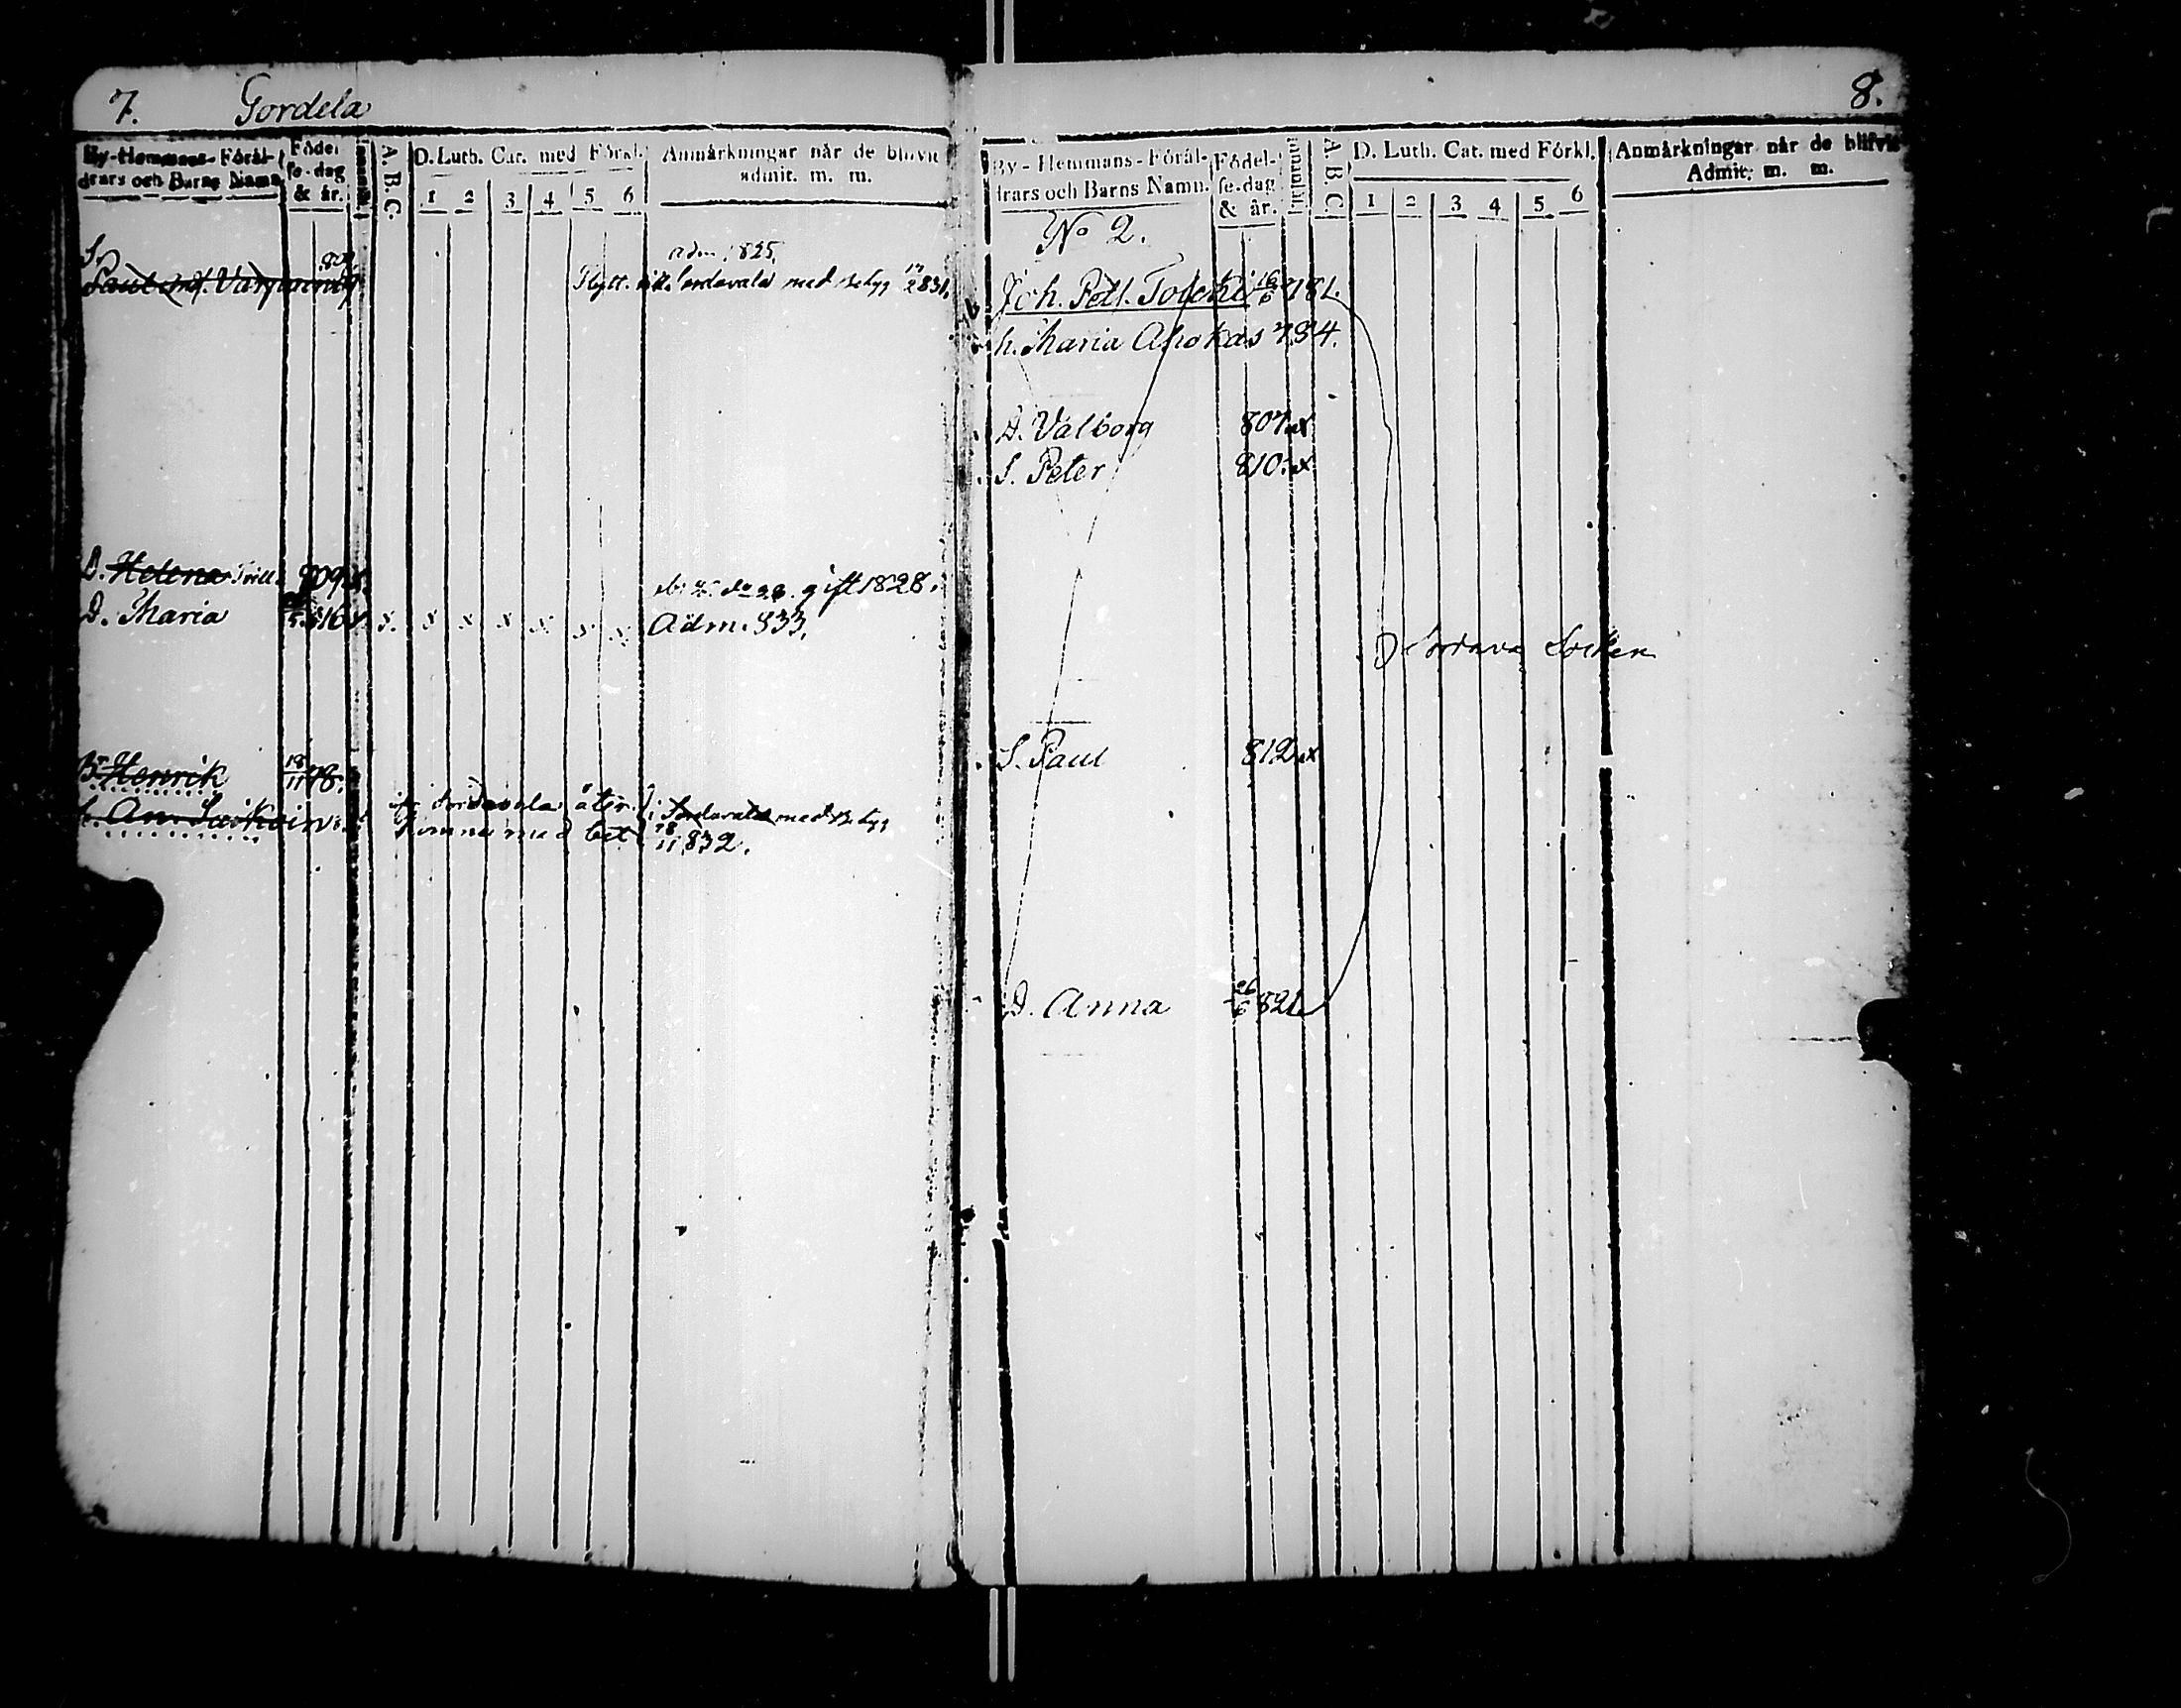 7. Gordela
By-Hemmans-Föräl-
drars och Barns Namn
Födel
se-dag
& år.
A. B. C.
D. Luth. Cat. med Förkl.
1 2 3 4 5 6
Anmärkningar när de blifvit
admit. m. m.
S.
Paul
adm. 825.
Flytt. till Sordavala med Betyg 2 831.
D. Helena Tvill. 809
gift 1828.
D. Maria 816 x. x x x x x x Adm. 833.
Br. Henrik 18/11 98.
Sordavala åter
komna med bet
i Sordavala med Betyg
11 832.
8.
By-Hemmans-Föräl-
drars och Barns Namn.
Födel-
se-dag
& år.
innanläs.
A. B. C.
D. Luth. Cat. med Förkl.
1 2 3 4 5 6
Anmärkningar när de blifvit
Admit. m. m.
No 2.
Joh. Pell. 16/6 781.
h. Maria Ahokas 784.
D. Valborg 807 x
S. Peter 810. x
Socken
S. Paul 812 x
D. Anna 26/6 821